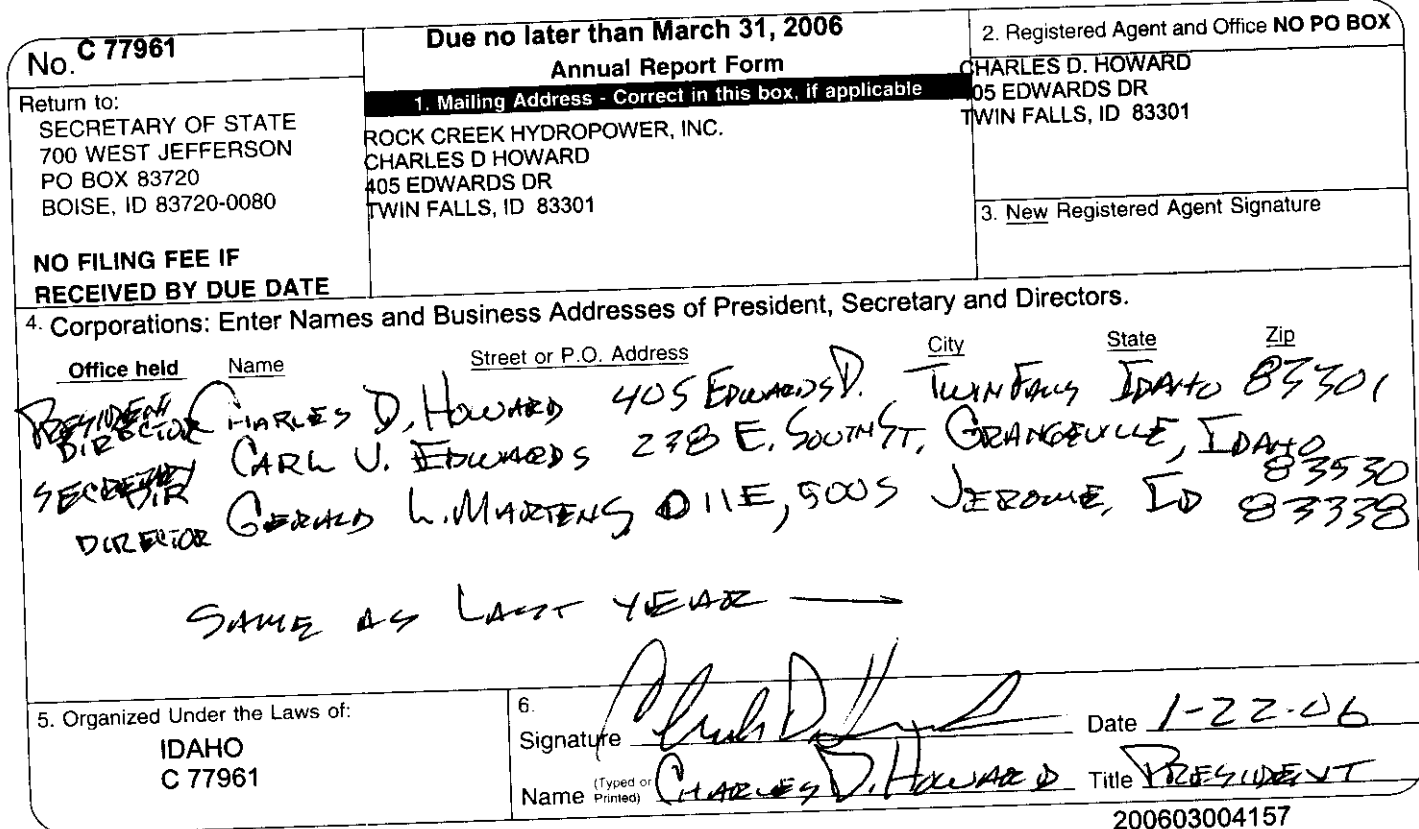 No. C 77961
Return to:
SECRETARY OF STATE
700 WEST JEFFERSON
PO BOX 83720
BOISE, ID 83720-0080
NO FILING FEE IF
RECEIVED BY DUE DATE
Due no later than March 31, 2006
Annual Report Form
1. Mailing Address - Correct in this box, if applicable
ROCK CREEK HYDROPOWER, INC.
CHARLES D HOWARD
405 EDWARDS DR
TWIN FALLS, ID 83301
2. Registered Agent and Office NO PO BOX
CHARLES D. HOWARD
05 EDWARDS DR
TWIN FALLS, ID 83301
3. New Registered Agent Signature
4. Corporations: Enter Names and Business Addresses of President, Secretary and Directors.
Office held Name Street or P.O. Address City State Zip
PRESIDENT
DIRECTOR CHARLES D. HOWARD 405 EDWARDS D. TWIN FALLS IDAHO 83301
SECRETARY
DIR CARL V. EDWARDS 238 E. SOUTH ST, GRANGEVILLE, IDAHO
83530
DIRECTOR GERALD L. MARTENS, 11E, 500S JEROME, ID 83338
SAME AS LAST YEAR
5. Organized Under the Laws of:
IDAHO
C 77961
6.
Signature Date 1-22-06
Name (Typed or Printed) CHARLES D. HOWARD Title PRESIDENT
200603004157